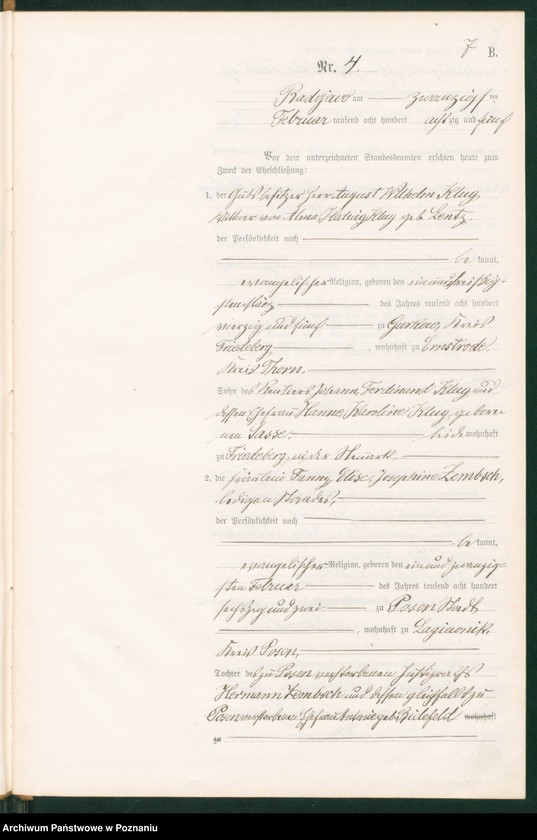 7 B.
Nr. 4.
Radojewo am zwanzigsten
Februar tausend acht hundert achtzig und fünf
Vor dem unterzeichneten Standesbeamten erschien heute zum
Zweck der Eheschließung:
1. der Gutsbesitzer Herr August Wilhelm Klug
Witwer von Alma Hedwig Klug geb. Lentz.
der Persönlichkeit nach
be kannt,
evangelischer Religion, geboren den einunddreißig-
sten März des Jahres tausend acht hundert
vierzig und fünf zu Gurkow, Kreis
Friedeberg, wohnhaft zu Ernstrode.
Kreis Thorn.
Sohn des Rentiers Johann, Ferdinand Klug und
dessen Ehefrau Hanne, Karoline Klug, gebore-
nen Sasse. beide wohnhaft
zu Friedeberg, in der Neumark.
2. die Fräulein Fanny, Elise, Josephine Zembsch,
ledigen Standes,
der Persönlichkeit nach
be kannt,
evangelischer Religion, geboren den ein und zwanzig-
sten Februar des Jahres tausend acht hundert
sechszig und zwei zu Posen Stadt
, wohnhaft zu Lagiewnik
Kreis Posen,
Tochter des zu Posen verstorbenen Justizraths
Hermann Zembsch und dessen gleichfalls zu
Posen verstorbenen Ehefrau Antonie geb. Bielefeld wohnhaft
zu
Archiwum Państwowe w Poznaniu